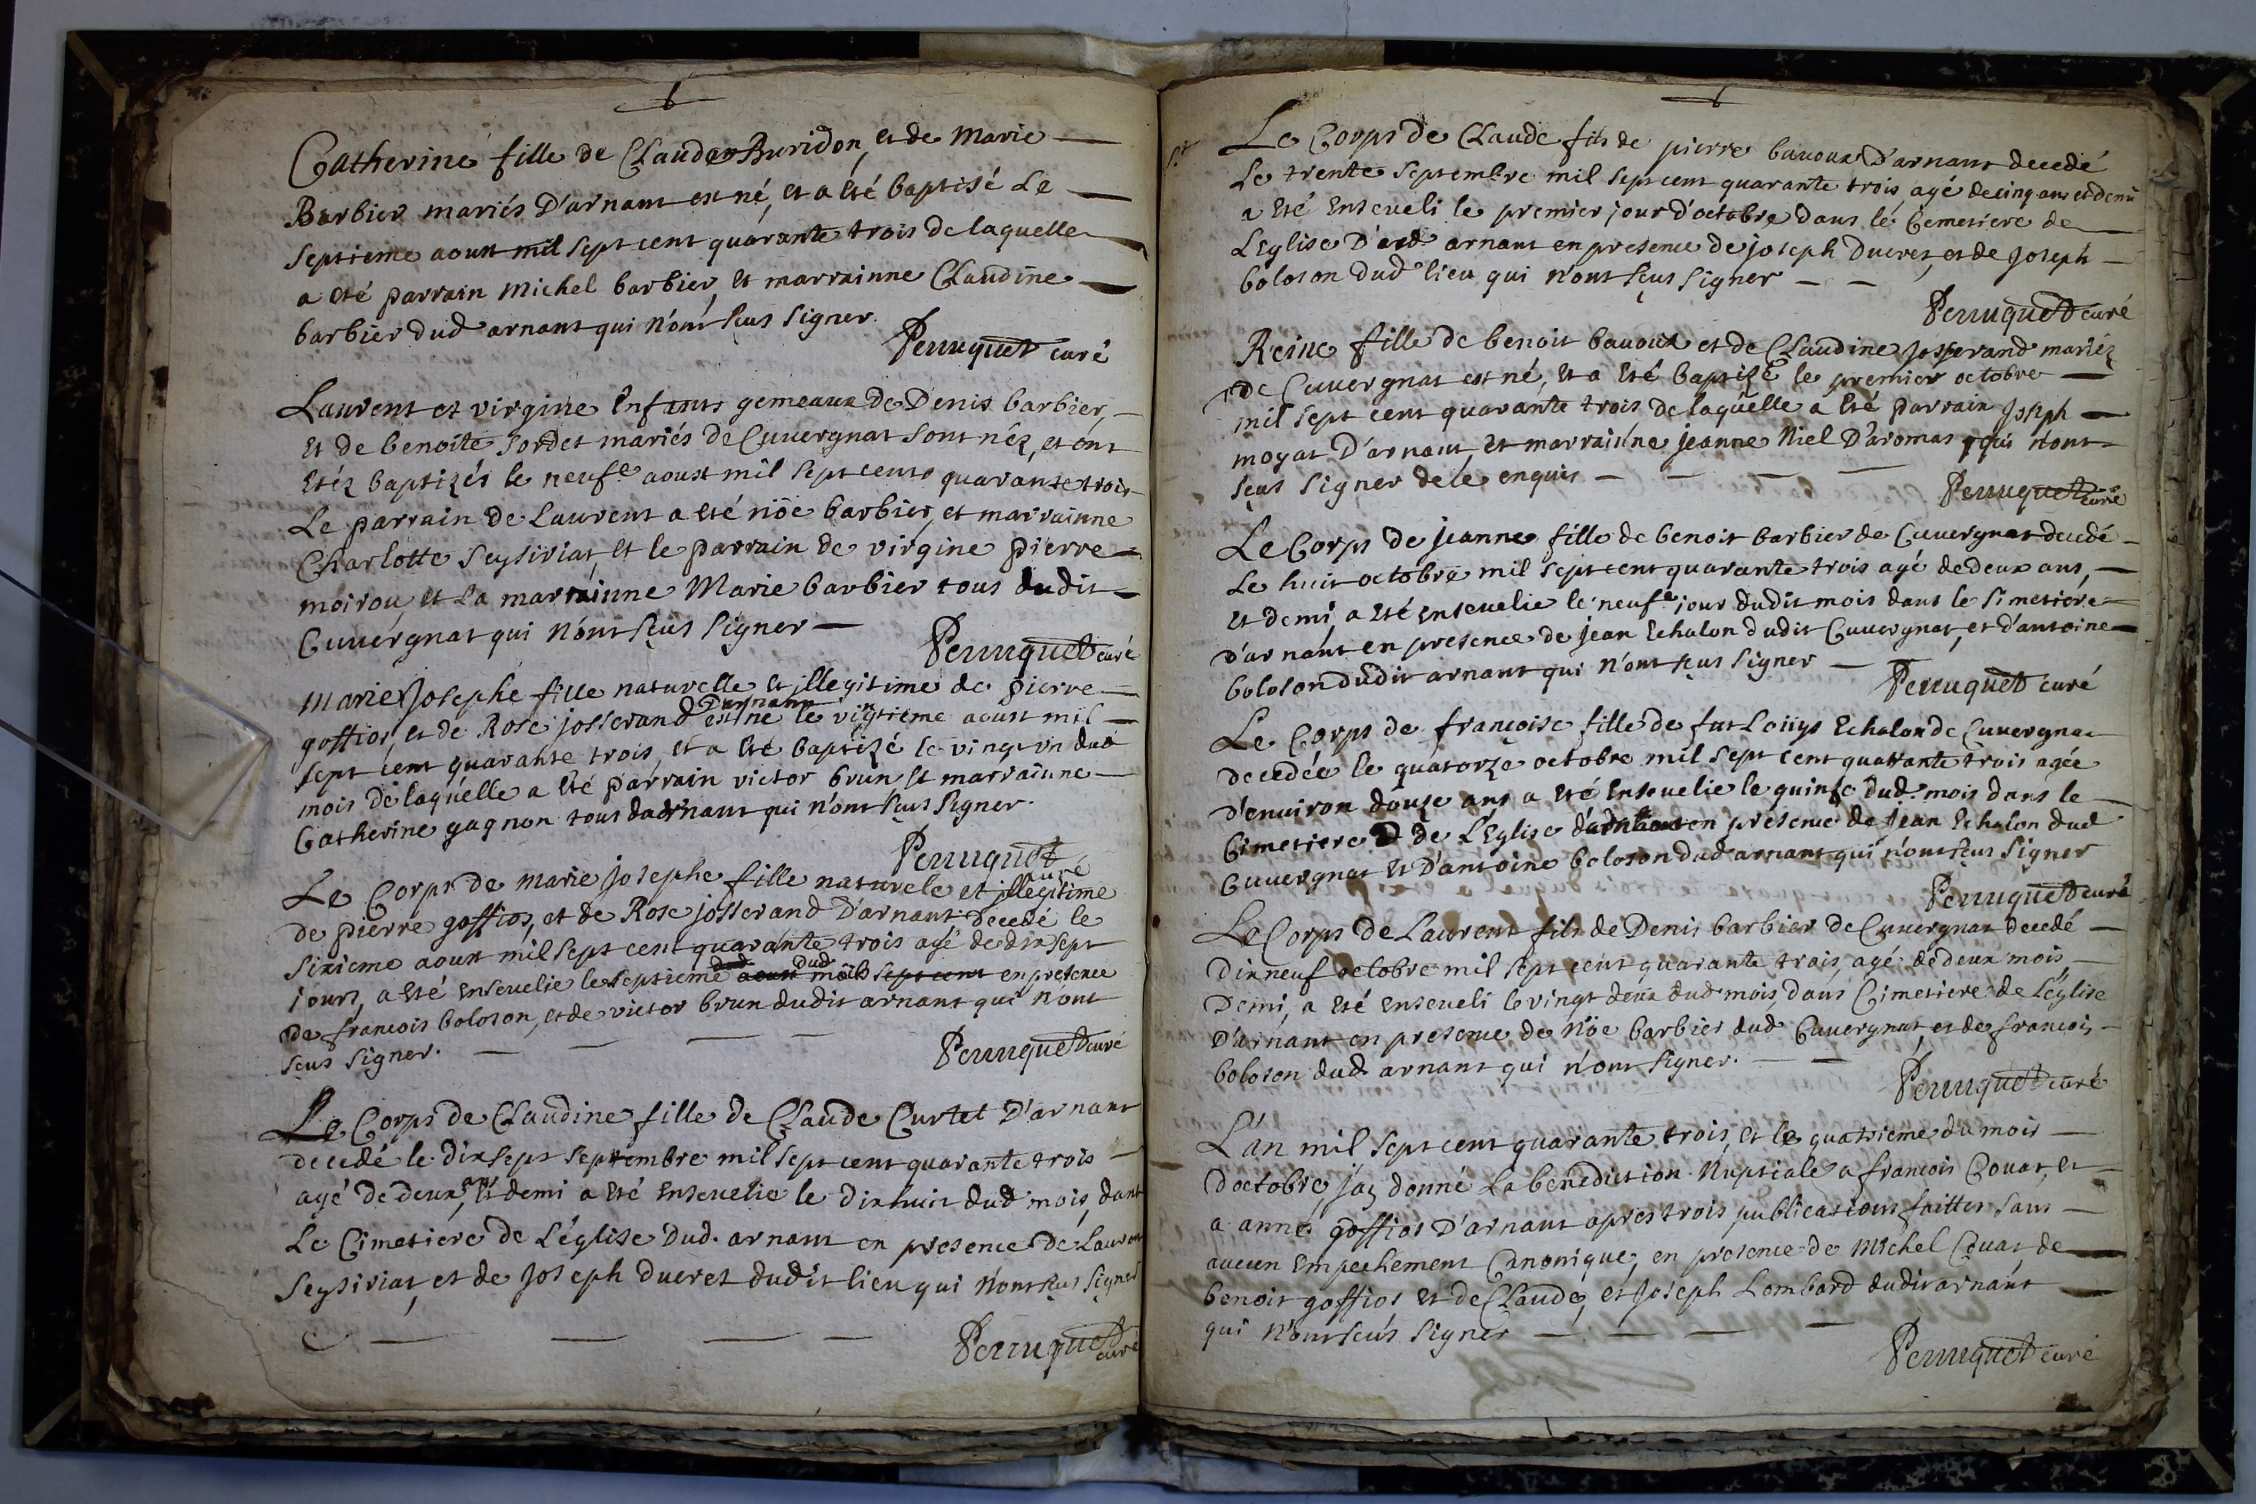 Catherine fille de Claude Buridon, et de Marie
Barbier mariés D'arnant est né, et a été baptisé Le
septieme aoust mil sept cent quarante trois de laquelle
a eté parrain Michel barbier, et marrainne Claudine
barbier dud arnant qui n'ont sçus signer.
Perruquet curé
Laurent et virgine Enfants gemeaux de Denis barbier,
et de benoite Sordet mariés de Cuvergnat sont néz, et ont
etéz baptizés le neufe aoust mil sept cents quarante trois
Le parrain de Laurent a eté nöé barbier, et marrainne
Charlotte Seysiriat, et le parrain de virgine pierre
moirou et La marrainne Marie barbier tous dudit
Cuvergnat qui n'ont sçus signer
Perruquet curé
Marie Josephe fille naturelle et illegitime de pierre
goffios, et de Rose josserand D'arnant est né le vigtieme aoust mil
sept cent quarante trois, et a eté baptizé le vingt un dud
mois de laquelle a eté parrain victor brun et marrainne
Catherine gagnon tous d'arnant qui n'ont sçus signer.
Perruquet curé
Le Corps de marie josephe fille naturele et illegitime
de pierre goffios, et de Rose josserand D'arnant decedé le
sixieme aoust mil sept cent quarante trois agé de dix sept
jours, a eté ensevelie le septieme dud aoust dud mois sept cent en presence
de francois boloson, et de victor brun dudit arnant qui n'ont
sçus signer.
Perruquet curé
Le Corps de Claudine fille de Claude Curtet D'arnant
decedé le dix sept septembre mil sept cent quarante trois
agé de deux ans et demi a eté ensevelie le dix huit dud mois, dans
Le Cimetiere de L'église dud. arnant en presence de Laurent
Seysiriat, et de Joseph ducret dudit lieu qui n'ont sçus signer
Perruquet curé
Le Corps de Claude fils de pierre bavoux D'arnant decedé
Le trente septembre mil sept cent quarante trois agé de cinq ans et demi
a eté enseveli le premier jour d'octobre dans le Cemetiere de
L'Eglise D'ard. arnant en presence de joseph Ducret, et de Joseph
boloson dud lieu qui n'ont sçus signer
Perruquet curé
Reine fille de benoit bavoux et de Claudine Josserand mariéz
de Cuvergnat est né, et a eté baptizé le premier octobre
mil sept cent quarante trois de laquelle a eté parrain Joseph
moyat D'arnant, et marrainne jeanne Niel D'aromas qui n'ont
sçus signer de ce enquis
Perruquet curé
Le Corps de jeanne fille de benoit barbier de Cuvergnat decedé
Le huit octobre mil sept cent quarante trois agé de deux ans,
et demi, a eté ensevelie le neufe jour dudit mois dans le simetiere
D'arnant en presence de jean Echalon dudit Cuvergnat, et d'antoine
boloson dudit arnant qui n'ont sçus signer
Perruquet curé
Le Corps de françoise fille de fut Loüys Echalon de Cuvergnat
decedée le quatorze octobre mil sept cent quarrante trois agée
D'environ douze ans a eté Ensevelie le quinse dud. mois dans le
Cimetiere D de L'Eglise d'arnant en presence de jean Echalon dud
Cuvergnat et D'antoine boloson dud arnant qui n'ont sçus signer
Perruquet curé
Le Corps de Laurent fils de Denis barbier de Cuvergnat decedé
Dix neuf octobre mil sept cent quarante trois, agé de deux mois
Demi, a eté enseveli le vingt deux dud mois, dans Cimetiere de L'église
D'arnant en presence de nöe barbier dud Cuvergnat, et de francois
boloson dud. arnant qui n'ont signer.
Perruquet curé
L'an mil sept cent quarante trois, et le quatrieme du mois
d'octobre, jay donné La benediction nuptiale a francois Couat, et
a anne goffios D'arnant apres trois publications faittes sans
aucun Empechement Canonique, en presence de Michel Couat, de
benoit goffios et de Claude, et Joseph Lombard dudit arnant
qui n'ont sceus signer
Perruquet curé